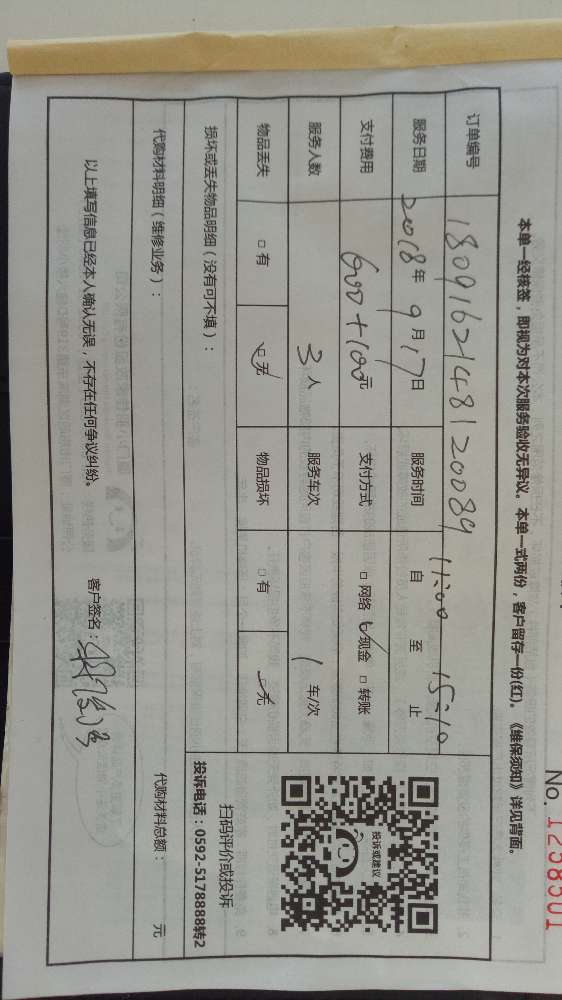 No. 1258501
本单一经核签，即视为对本次服务验收无异议。本单一式两份，客户留存一份(红)。《维保须知》详见背面。
订单编号 1809162148120089
服务日期 2018年 9月17日 服务时间 自 11:00 至 15:10 止
支付费用 600+100元 支付方式 □ 网络 ☑现金 □ 转账
服务人数 3人 服务车次 1 车/次
物品丢失 □ 有 ☑无 物品损坏 □ 有 ☑无
损坏或丢失物品明细（没有可不填）：
代购材料明细（维修业务）：
代购材料总额： 元
以上填写信息已经本人确认无误，不存在任何争议纠纷。 客户签名：
投诉或建议
扫码评价或投诉
投诉电话：0592-5178888转2